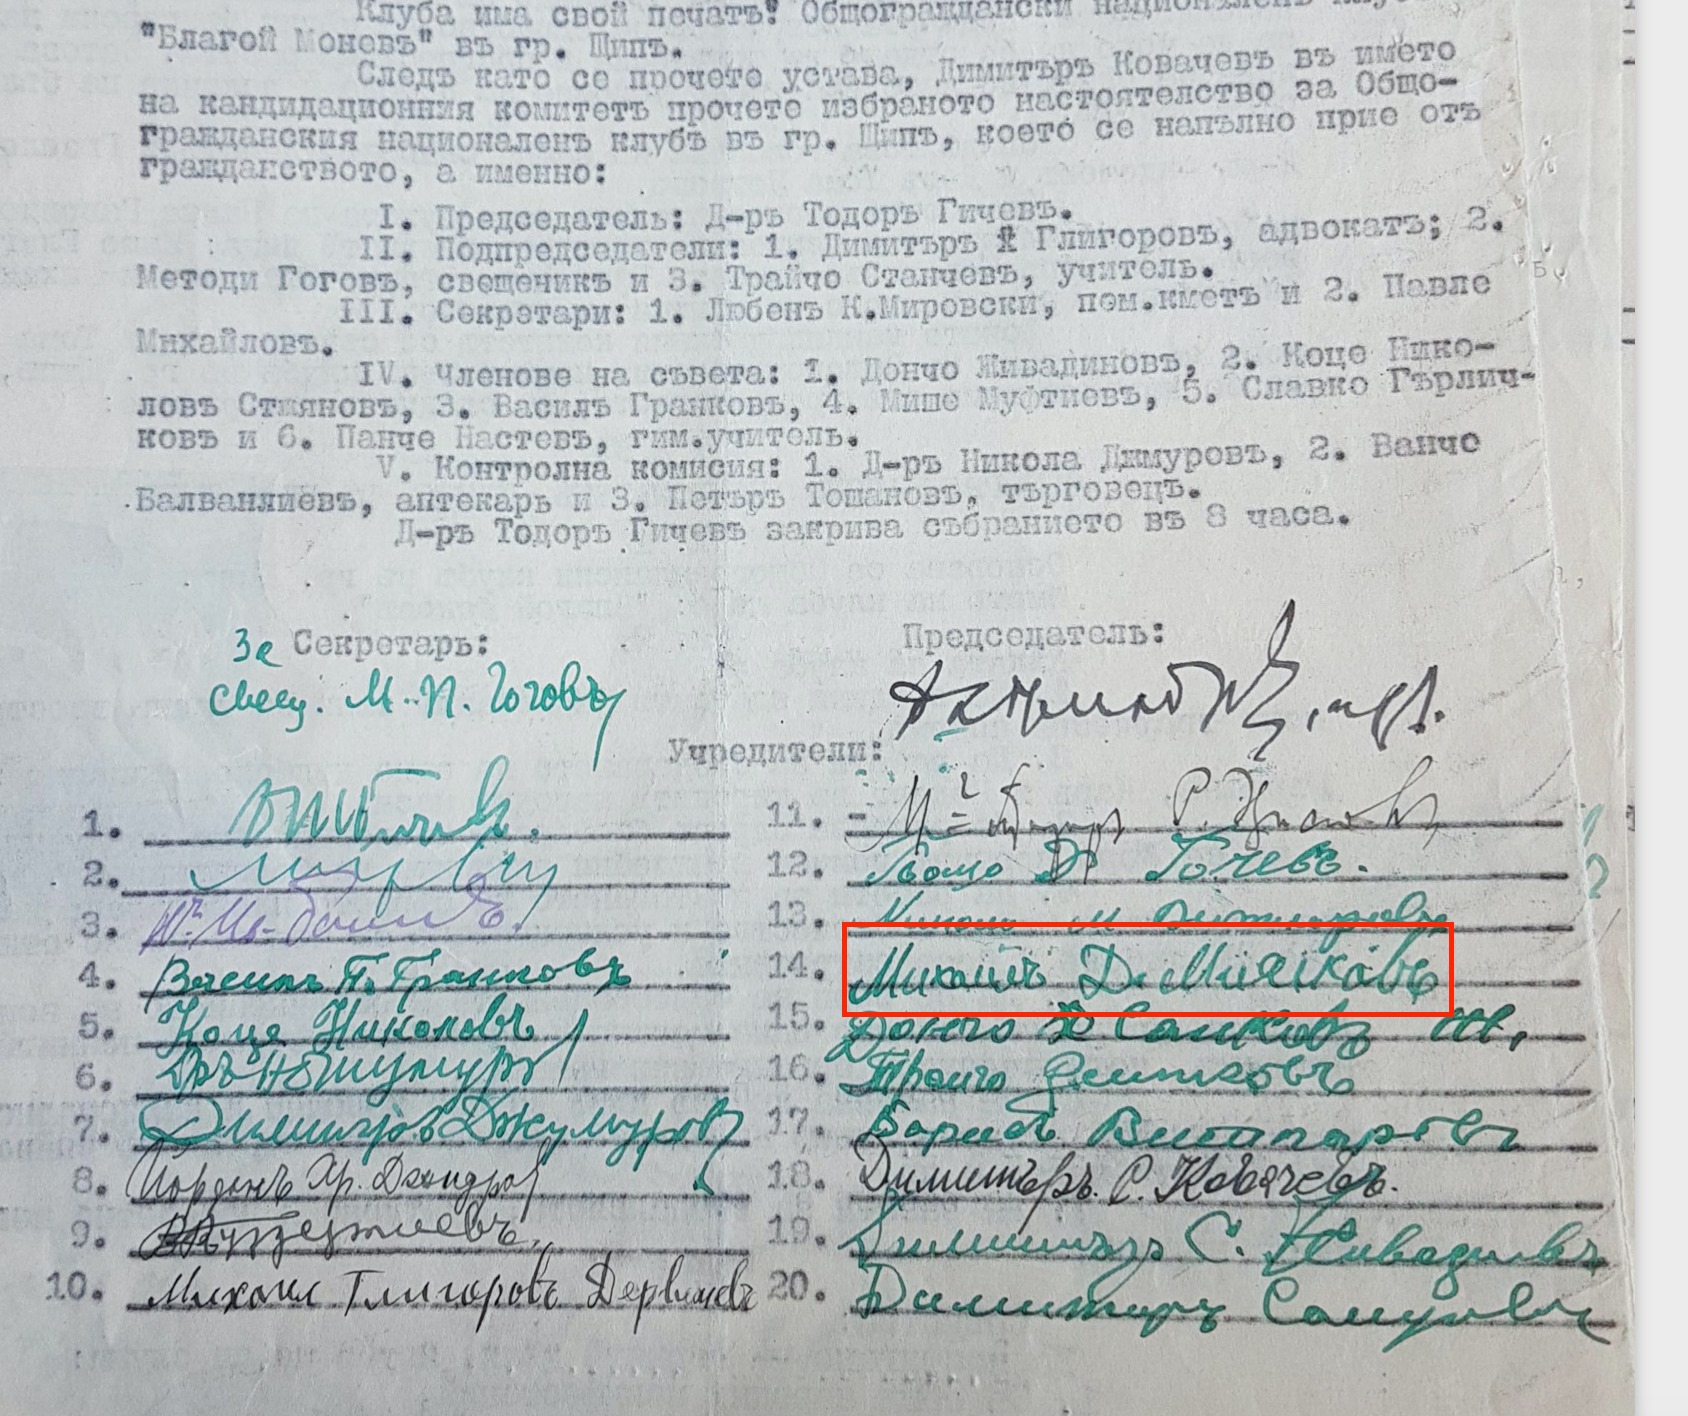 Клуба има свой печатъ: Общограждански националенъ клубъ
"Благой Моневъ" въ гр. Щипъ.
Следъ като се прочете устава, Димитъръ Ковачевъ въ името
на кандидационния комитетъ прочете избраното настоятелство за Общо-
гражданския националенъ клубъ въ гр. Щипъ, което се напълно прие отъ
гражданството, а именно:
I. Председатель: Д-ръ Тодоръ Гичевъ.
II. Подпредседатели: 1. Димитъръ Глигоровъ, адвокатъ; 2.
Методи Гоговъ, свещеникъ и 3. Трайчо Станчевъ, учитель.
III. Секретари: 1. Любенъ К.Мировски, пом.кметъ и 2. Павле
Михайловъ.
IV. Членове на съвета: 1. Дончо Живадиновъ, 2. Коце Нико-
ловъ Стояновъ, 3. Василъ Гранковъ, 4. Мише Муфтиевъ, 5. Славко Гърлич-
ковъ и 6. Панче Настевъ, гим.учитель.
V. Контролна комисия: 1. Д-ръ Никола Джмуровъ, 2. Ванчо
Балванлиевъ, аптекарь и 3. Петъръ Тошановъ, търговецъ.
Д-ръ Тодоръ Гичевъ закрива събранието въ 8 часа.
За Секретарь: Председатель:
свещ. М. П. Гоговъ
Учредители:
1. 11.
2. 12. Гочевъ.
3. 13.
4. Василъ П. Гранковъ 14. Михаилъ Д. Мияковъ
5. Коце Николовъ 15. Дончо
6. 16.
7. Димитровъ Джумуровъ 17. Борисъ
8. Йорданъ Хр. 18. Димитъръ С. Ковачевъ.
9. 19. Димитъръ С. Живадиновъ
10. Михаил Глигоровъ Дервишевъ 20. Димитъръ